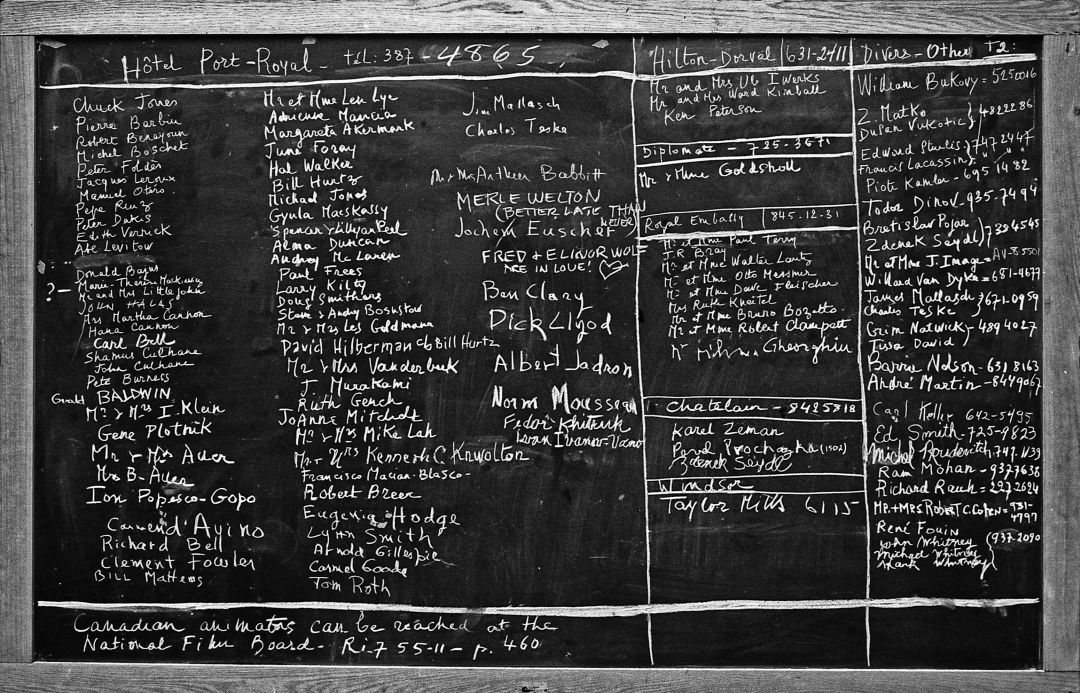 Hôtel Port-Royal - tel: 387-4865
Chuck Jones
Pierre Barbin
Robert Benayoun
Michel Boschet
Peter Foldès
Jacques Leroux
Manuel Otero
Pepe Ruiz
Peter Dakis
Edith Vernick
Abe Levitow
Donald Bajus
?- Marie-Thérèse
Mr and Mrs Littlejohn
JOHN HALAS
Mrs Martha Cannon
Hana Cannon
Carl Bell
Shamus Culhane
John Culhane
Pete Burness
Gerald BALDWIN
Mr & Mrs I. Klein
Gene Plotnik
Mr & Mrs Auer
Mrs B. Auer
Ion Popesco-Gopo
Carmen d'Avino
Richard Bell
Clement Fowler
BILL Mathews
Mr et Mme Len Lye
Adrienne Mancia
Margareta Akermark
June Foray
Hal Walker
Bill Hurtz
Michael Jones
Gyula Macskassy
Spencer & Lillyan Peel
Alma Duncan
Audrey Mc Laren
Paul Frees
Larry Kilty
Doug Smithers
Steve & Andy Bosustow
Mr & Mrs Les Goldmann
David Hilberman c/o Bill Hurtz
Mr & Mrs Vanderbeek
J. Murakami
Ruth Gench
JoAnne Mitchell
Mr & Mrs Mike Lah
Mr & Mrs Kenneth C. Knwolton
Francisco Macian-Blasco-
Robert Breer
Eugenia Hodge
Lynn Smith
Arnold Gillespie
Carmel Goode
Tom Roth
Jim Mallasch
Charles Teske
Mr & Mrs Arthur Babbitt
MERLE WELTON
(BETTER LATE THAN NEVER)
Jochem Euscher
FRED & ELINOR WOLF
ARE IN LOVE!
Ben Clary
Dick Llyod
Albert Jadron
Norm Mousseau
Fedor Khitruk
Ivan Ivanov-Vano
Hilton-Dorval 631-2411
Mr and Mrs Ub Iwerks
Mr and Mrs Ward Kimball
Ken Peterson
Diplomate - 725-3671
Mr & Mme Goldsholl
Royal Embassy 845-12-31
Mr et Mme Paul Terry
J.R Bray
Mr et Mme Walter Lantz
Mr et Mme Otto Messmer
Mr et Mme Dave Fleischer
Mrs Ruth Kneitel
Mr et Mme Bruno Bozetto
Mr et Mme Robert Clampett
Gheorghiu
Chatelain - 8425818
Karel Zeman
Pavel Prochazka (1502)
Zdenek Seydl
Windsor
Taylor Mills 6115
Divers - Other tel:
William Bukovy = 5250016
Z. Matko
Dusan Vukotic } 4822286
Edward Sturlis } 7472447
Francis Lacassin } " " "
Piotr Kamler - 695 1482
Todor Dinov 935-7494
Bretislav Pojar
Zdenek Seydl } 7894545
Mr et Mme J. Image = AV-8-5501
Willard Van Dyke = 681-4677
James Mallasch
Charles Teske } 671-0959
Grim Natwick
Tissa David } 489 4027
Barrie Nelson - 631 8163
André Martin - 8449067
Carl Keller 642-5495
Ed Smith - 725-9823
Ram Mohan - 9377638
Richard Rauh = 297-2694
MR. + MRS ROBERT C. COHEN = 931-4797
René Fouin
John Whitney
Michael Whitney
Mark Whitney } (937-2090
Canadian animators can be reached at the
National Film Board - Ri.7 55-11 - p. 460